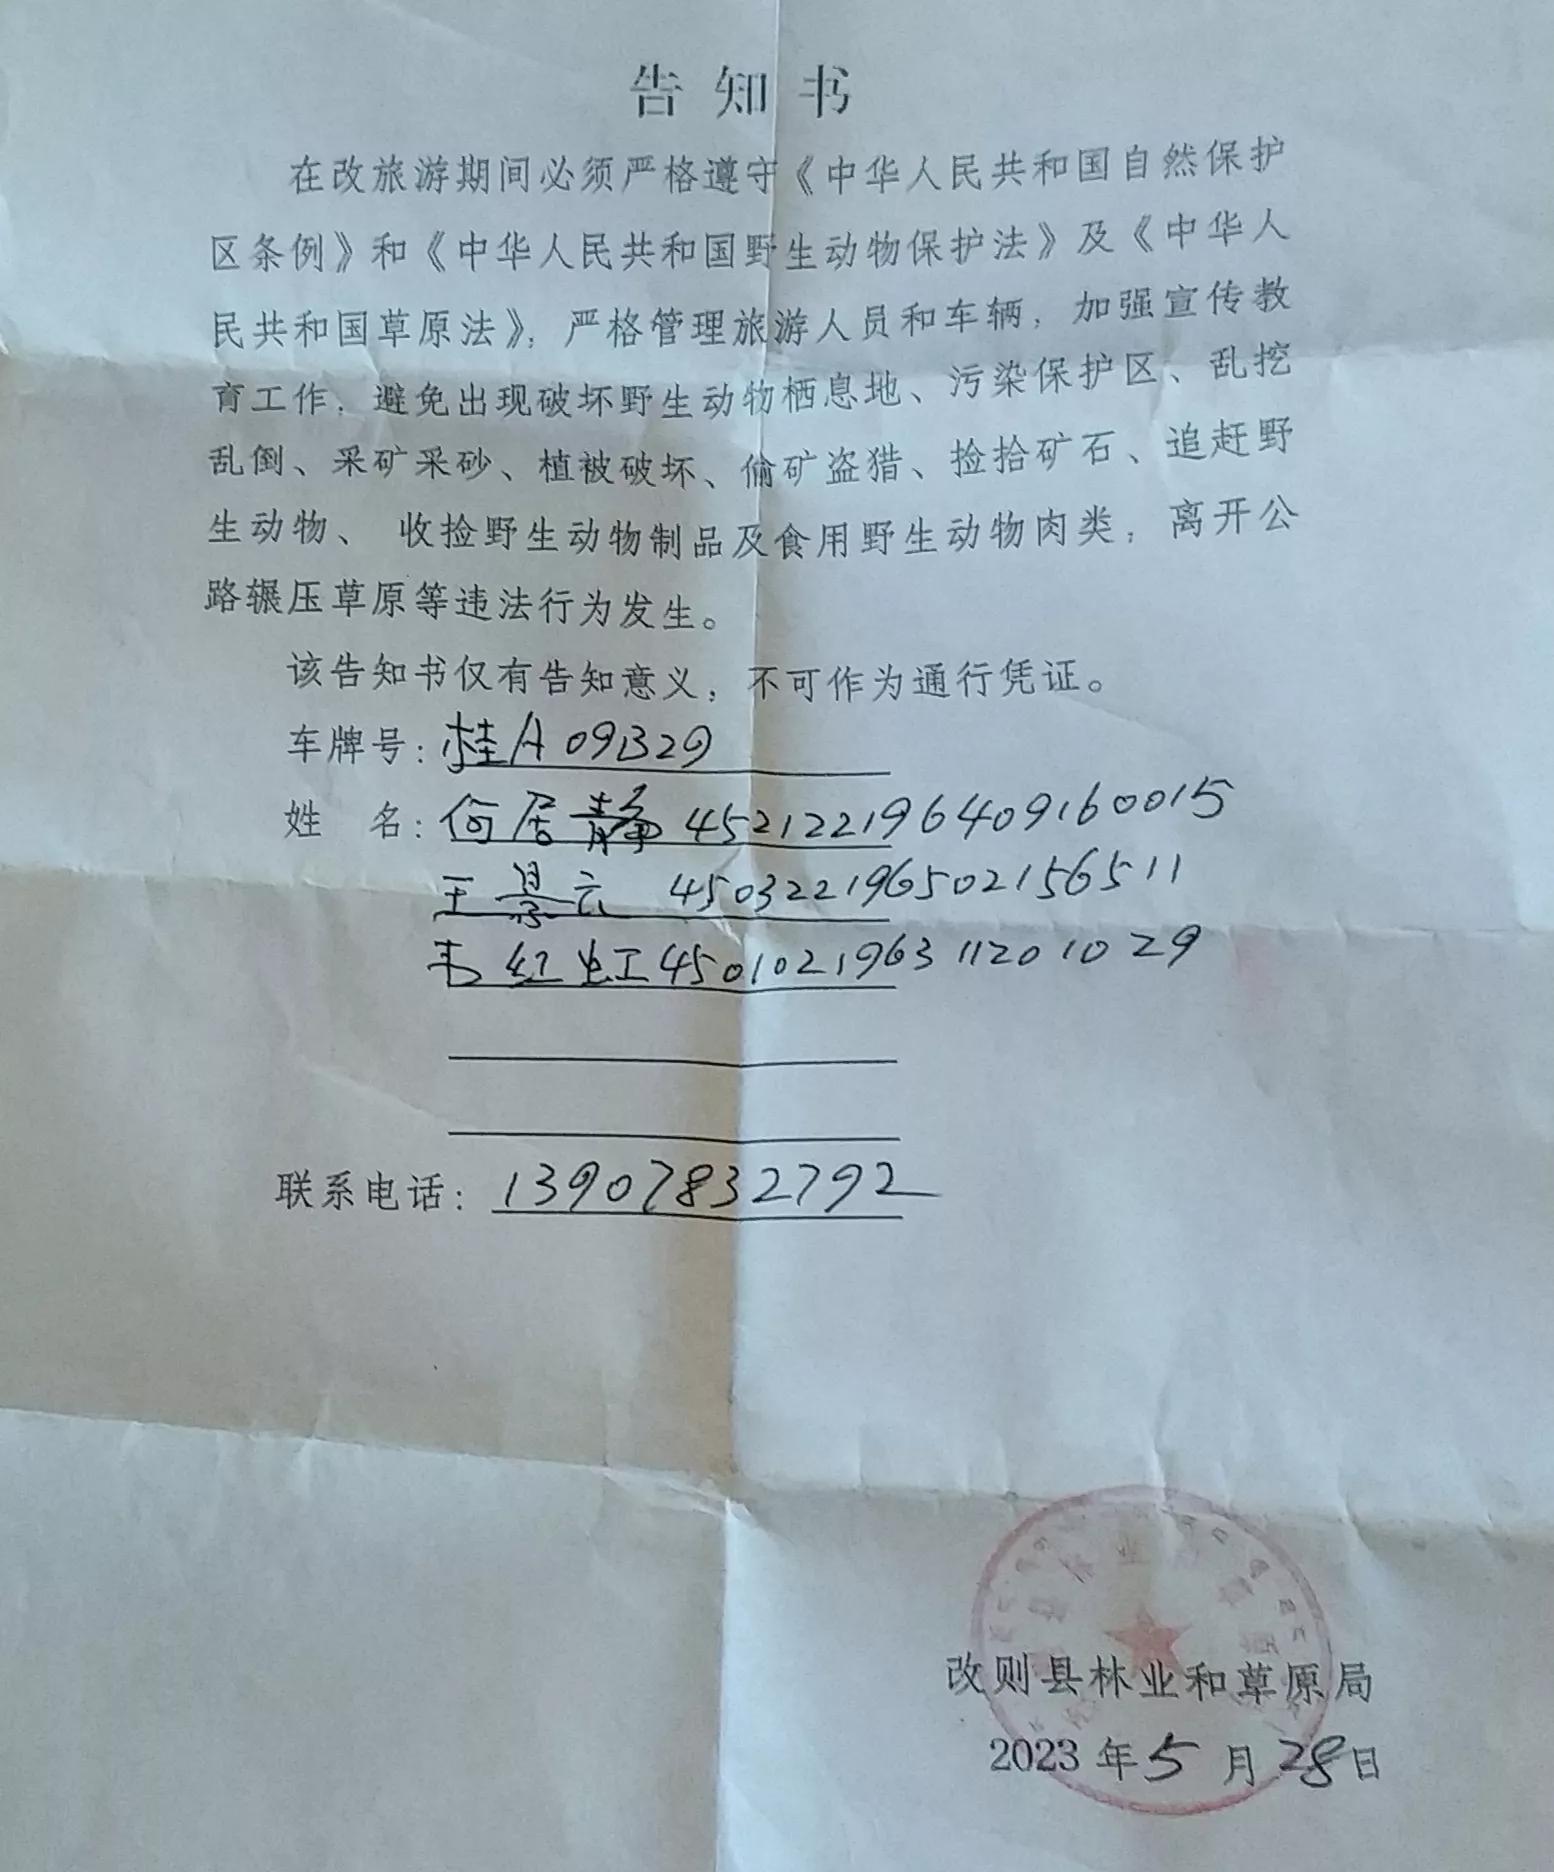 告知书
在改旅游期间必须严格遵守《中华人民共和国自然保护
区条例》和《中华人民共和国野生动物保护法》及《中华人
民共和国草原法》，严格管理旅游人员和车辆，加强宣传教
育工作，避免出现破坏野生动物栖息地、污染保护区、乱挖
乱倒、采矿采砂、植被破坏、偷矿盗猎、捡拾矿石、追赶野
生动物、 收捡野生动物制品及食用野生动物肉类，离开公
路辗压草原等违法行为发生。
该告知书仅有告知意义，不可作为通行凭证。
车牌号：桂A09B29
姓 名：何居静 452122196409160015
王景云 450322196502156511
韦红虹 450102196311201029
联系电话：13907832792
改则县林业和草原局
2023年5月28日